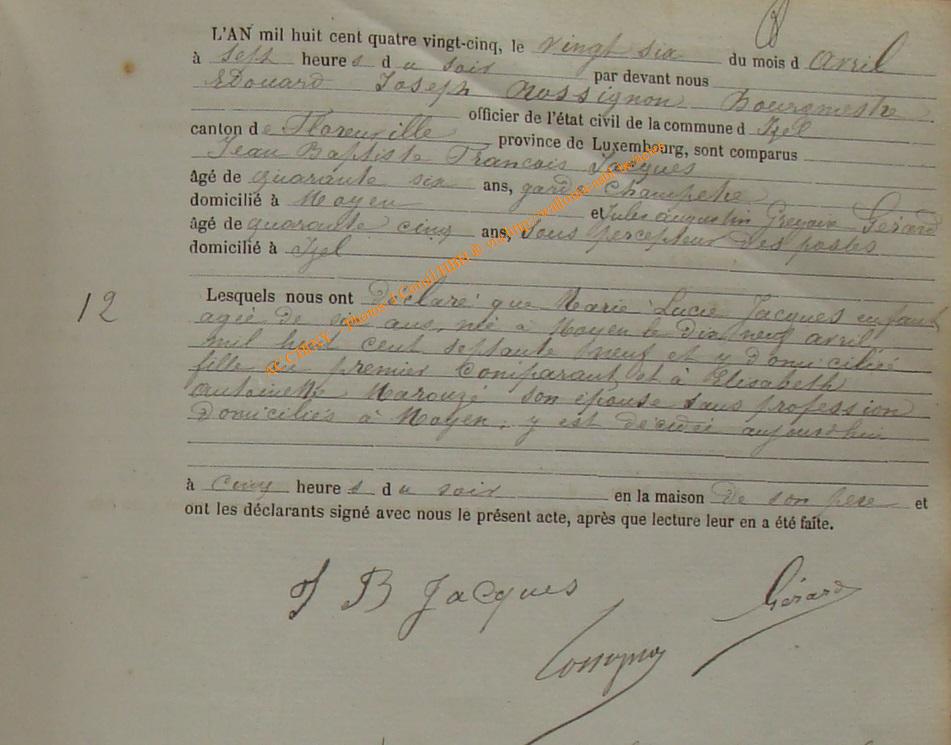 L'AN mil huit cent quatre vingt-cinq, le vingt six du mois d avril
à sept heures du soir par devant nous
Edouard Joseph Rossignon Bourgmestre
officier de l'état civil de la commune d Izel
canton de Florenville province de Luxembourg, sont comparus
Jean Baptiste Francois Jacques
âgé de quarante six ans, garde champetre
domicilié à Moyen et Jules Augustin Gérard
âgé de quarante cinq ans, sous percepteur des postes
domicilié à Izel
12 Lesquels nous ont déclaré que Marie Lucie Jacques enfant
agée de six ans, née à Moyen le dix neuf avril
mil huit cent septante neuf et y domiciliée
fille du premier comparant et à Elisabeth
Antoinette son épouse sans profession
domiciliés à Moyen, y est décédée aujourd'hui
à cinq heures du soir en la maison de son père et
ont les déclarants signé avec nous le présent acte, après que lecture leur en a été faite.
J B Jacques
Gérard